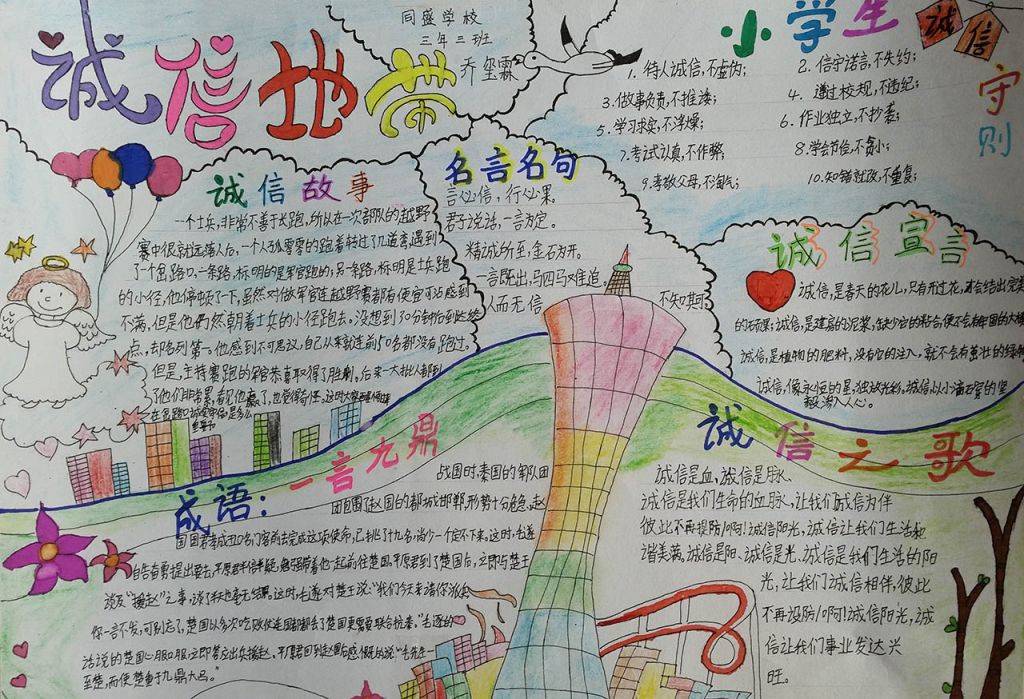 诚信地带
同盛学校
三年三班
乔玺霖
小学生
诚信
守则
1. 待人诚信,不虚伪;
2. 信守诺言,不失约;
3.做事负责,不推诿;
4. 遵过校规,不违纪;
5.学习求实,不浮燥;
6.作业独立,不抄袭;
7.考试认真,不作弊;
8.学会节俭,不贪小;
9.孝敬父母,不淘气;
10.知错就改,不重复;
诚信故事
一个士兵,非常不善于长跑,所以在一次部队的越野
赛中很就远落人后,一个人孤零零的跑着转过了几道弯遇到
了个岔路口,一条路,标明的是军官跑的;另一条路,标明是士兵跑
的小径,他停顿了一下,虽然对做军官连越野赛都有便宜可占感到
不满,但是他仍然朝着士兵的小径跑去。没想到30分钟后到达终
点,却名列第一。他感到不可思议,自己从来就连前50名都没有跑过。
但是,主持赛跑的军官恭喜取得了胜利。后来一大批人都到
了他们非常累,看见他赢了,也觉得奇怪,这时大家
在岔路口诚实守信是多么
重要
名言名句
言必信,行必果。
君子说话,一言为定。
精诚所至,金石为开。
一言既出,马四马难追。
人而无信
不知其可
诚信宣言
诚信,是春天的花儿,只有开过花,才会结出完美
的硕果;诚信,是建房的泥浆,
诚信,是植物的肥料,没有它的注入,就不会有茁壮的绿
诚信,像永恒的星,独放光彩,诚信以小滴石穿的坚
毅渗入人心。
成语:一言九鼎
战国时,秦国的军队团
团包围了赵国的都城邯郸,形势十分危急,赵
国国君孝成王口名门客前去完成这项使命,已挑了十九名,尚少一个定不下来。这时,毛遂
自告奋勇提出要去,平原君半信半疑,勉强带着他一起前往楚国。平原君到了楚国后,立即与楚王
谈及“援赵”之事,谈了半天也毫无结果。这时,毛遂对楚王说:“我们今天来请你派兵
你一言不发,可别忘了,楚国
话说的楚国心服口服,立即答应出兵援赵。平原君回到赵国后感慨地说:“毛先生一
至楚,而使楚重于九鼎大吕。”
诚信之歌
诚信是血,诚信是脉,
诚信是我们生命的血脉,让我们诚信为伴
彼此不再提防!啊!诚信阳光,诚信让我们生活和
谐美满。诚信是阳、诚信是光、诚信是我们生活的阳
光,让我们诚信相伴,彼此
不再设防!啊!诚信阳光,诚
信让我们事业发达兴
旺。